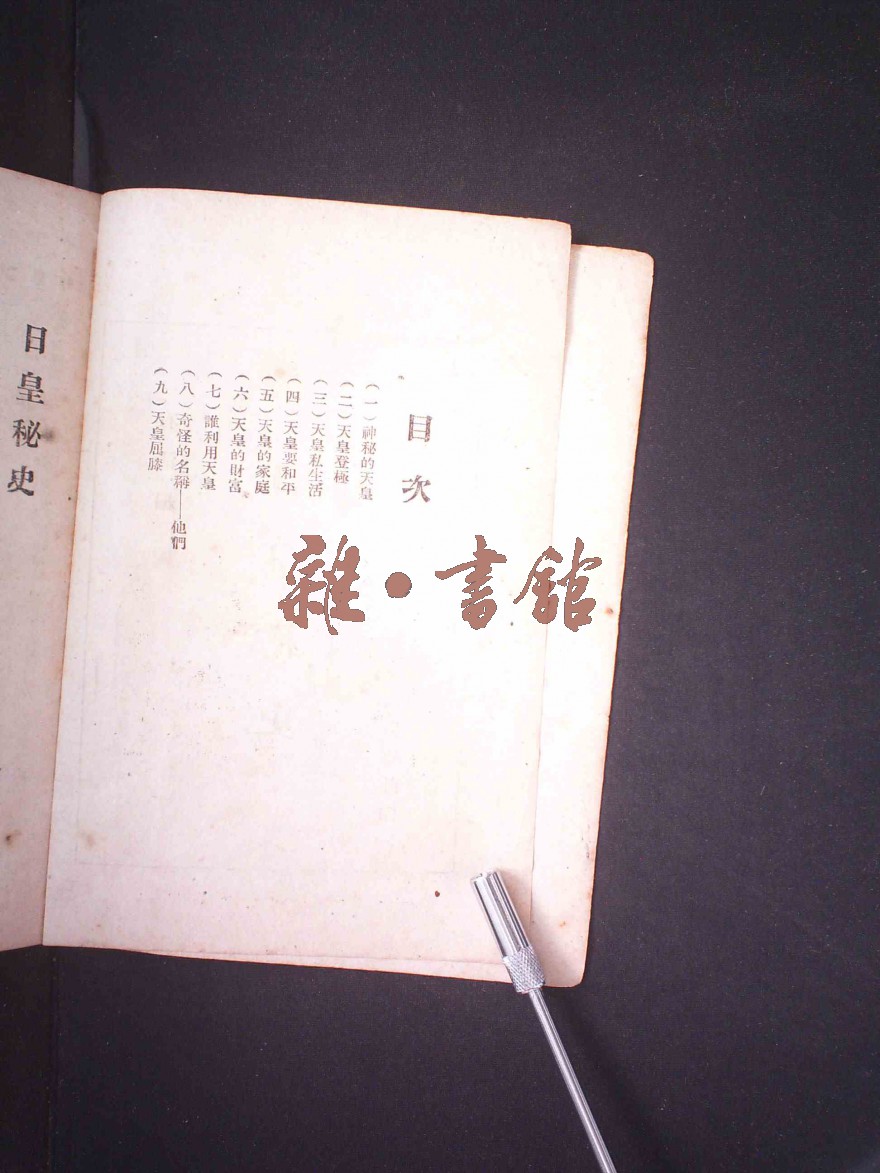 目次
(一)神秘的天皇
(二)天皇登極
(三)天皇私生活
(四)天皇要和平
(五)天皇的家庭
(六)天皇的財富
(七)誰利用天皇
(八)奇怪的名稱——他們
(九)天皇屈膝
日皇秘史
雜·書館